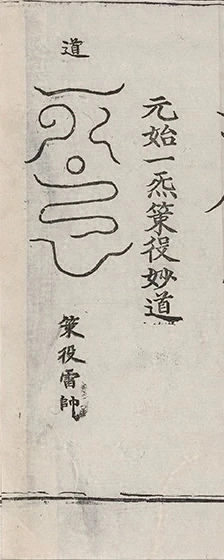 元始一炁策役妙道
道
策役雷帥